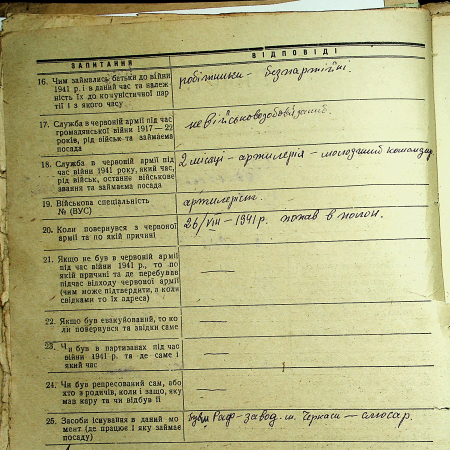 ЗАПИТАННЯ
ВІДПОВІДІ
16. Чим займались батьки до війни
1941 р. і в даний час та належ-
ність їх до комуністичної пар-
тії і з якого часу
робітники – безпартійні.
17. Служба в червоній армії під час
громадянської війни 1917—22
років, рід військ та займаєма
посада
невійськовозобовязаний.
18. Служба в червоній армії під
час війни 1941 року, який час,
рід військ, останнє військове
звання та займаєма посада
2 місяці – артилерія – молодший командир
19. Військова спеціальність
№ (ВУС)
артилерист.
20. Коли повернувся з червоної
армії та по якій причині
26/VIII – 1941 р. попав в полон.
21. Якщо не був в червоній армії
під час війни 1941 р., то по
якій причині та де перебував
підчас відходу червоної армії
(чим може підтвердити, а коли
свідками то їх адреса)
—
—
22. Якщо був евакуйований, то ко-
ли повернувся та звідки саме
—
23. Чи був в партизанах під час
війни 1941 р. та де саме і
який час
—
24. Чи був репресований сам, або
хто з родичів, коли і защо, яку
мав кару та чи відбув її
—
25. Засоби існування в даний мо-
мент (де працює і яку займає
посаду)
Раф-завод. м. Черкаси – слюсар.